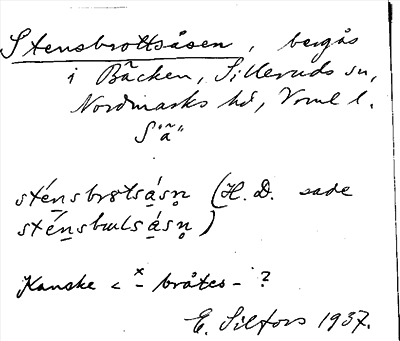 Stensbrottsåsen, bergås
i Bäcken, Silleruds sn,
Nordmarks hd, Vrml l.
sténsbrɷtsásn̥ (H. D. sade
sténsbɯlsásn̥)
Kanske < *- bråtes- ?
E. Silfors 1937.